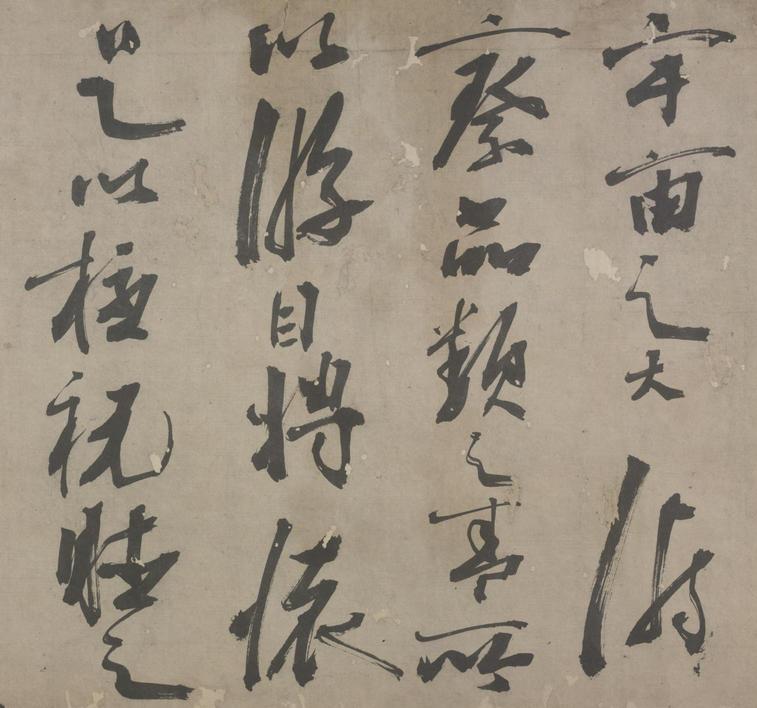 宇宙之大俯
察品類之盛所
以游目騁懷
足以極視聽之